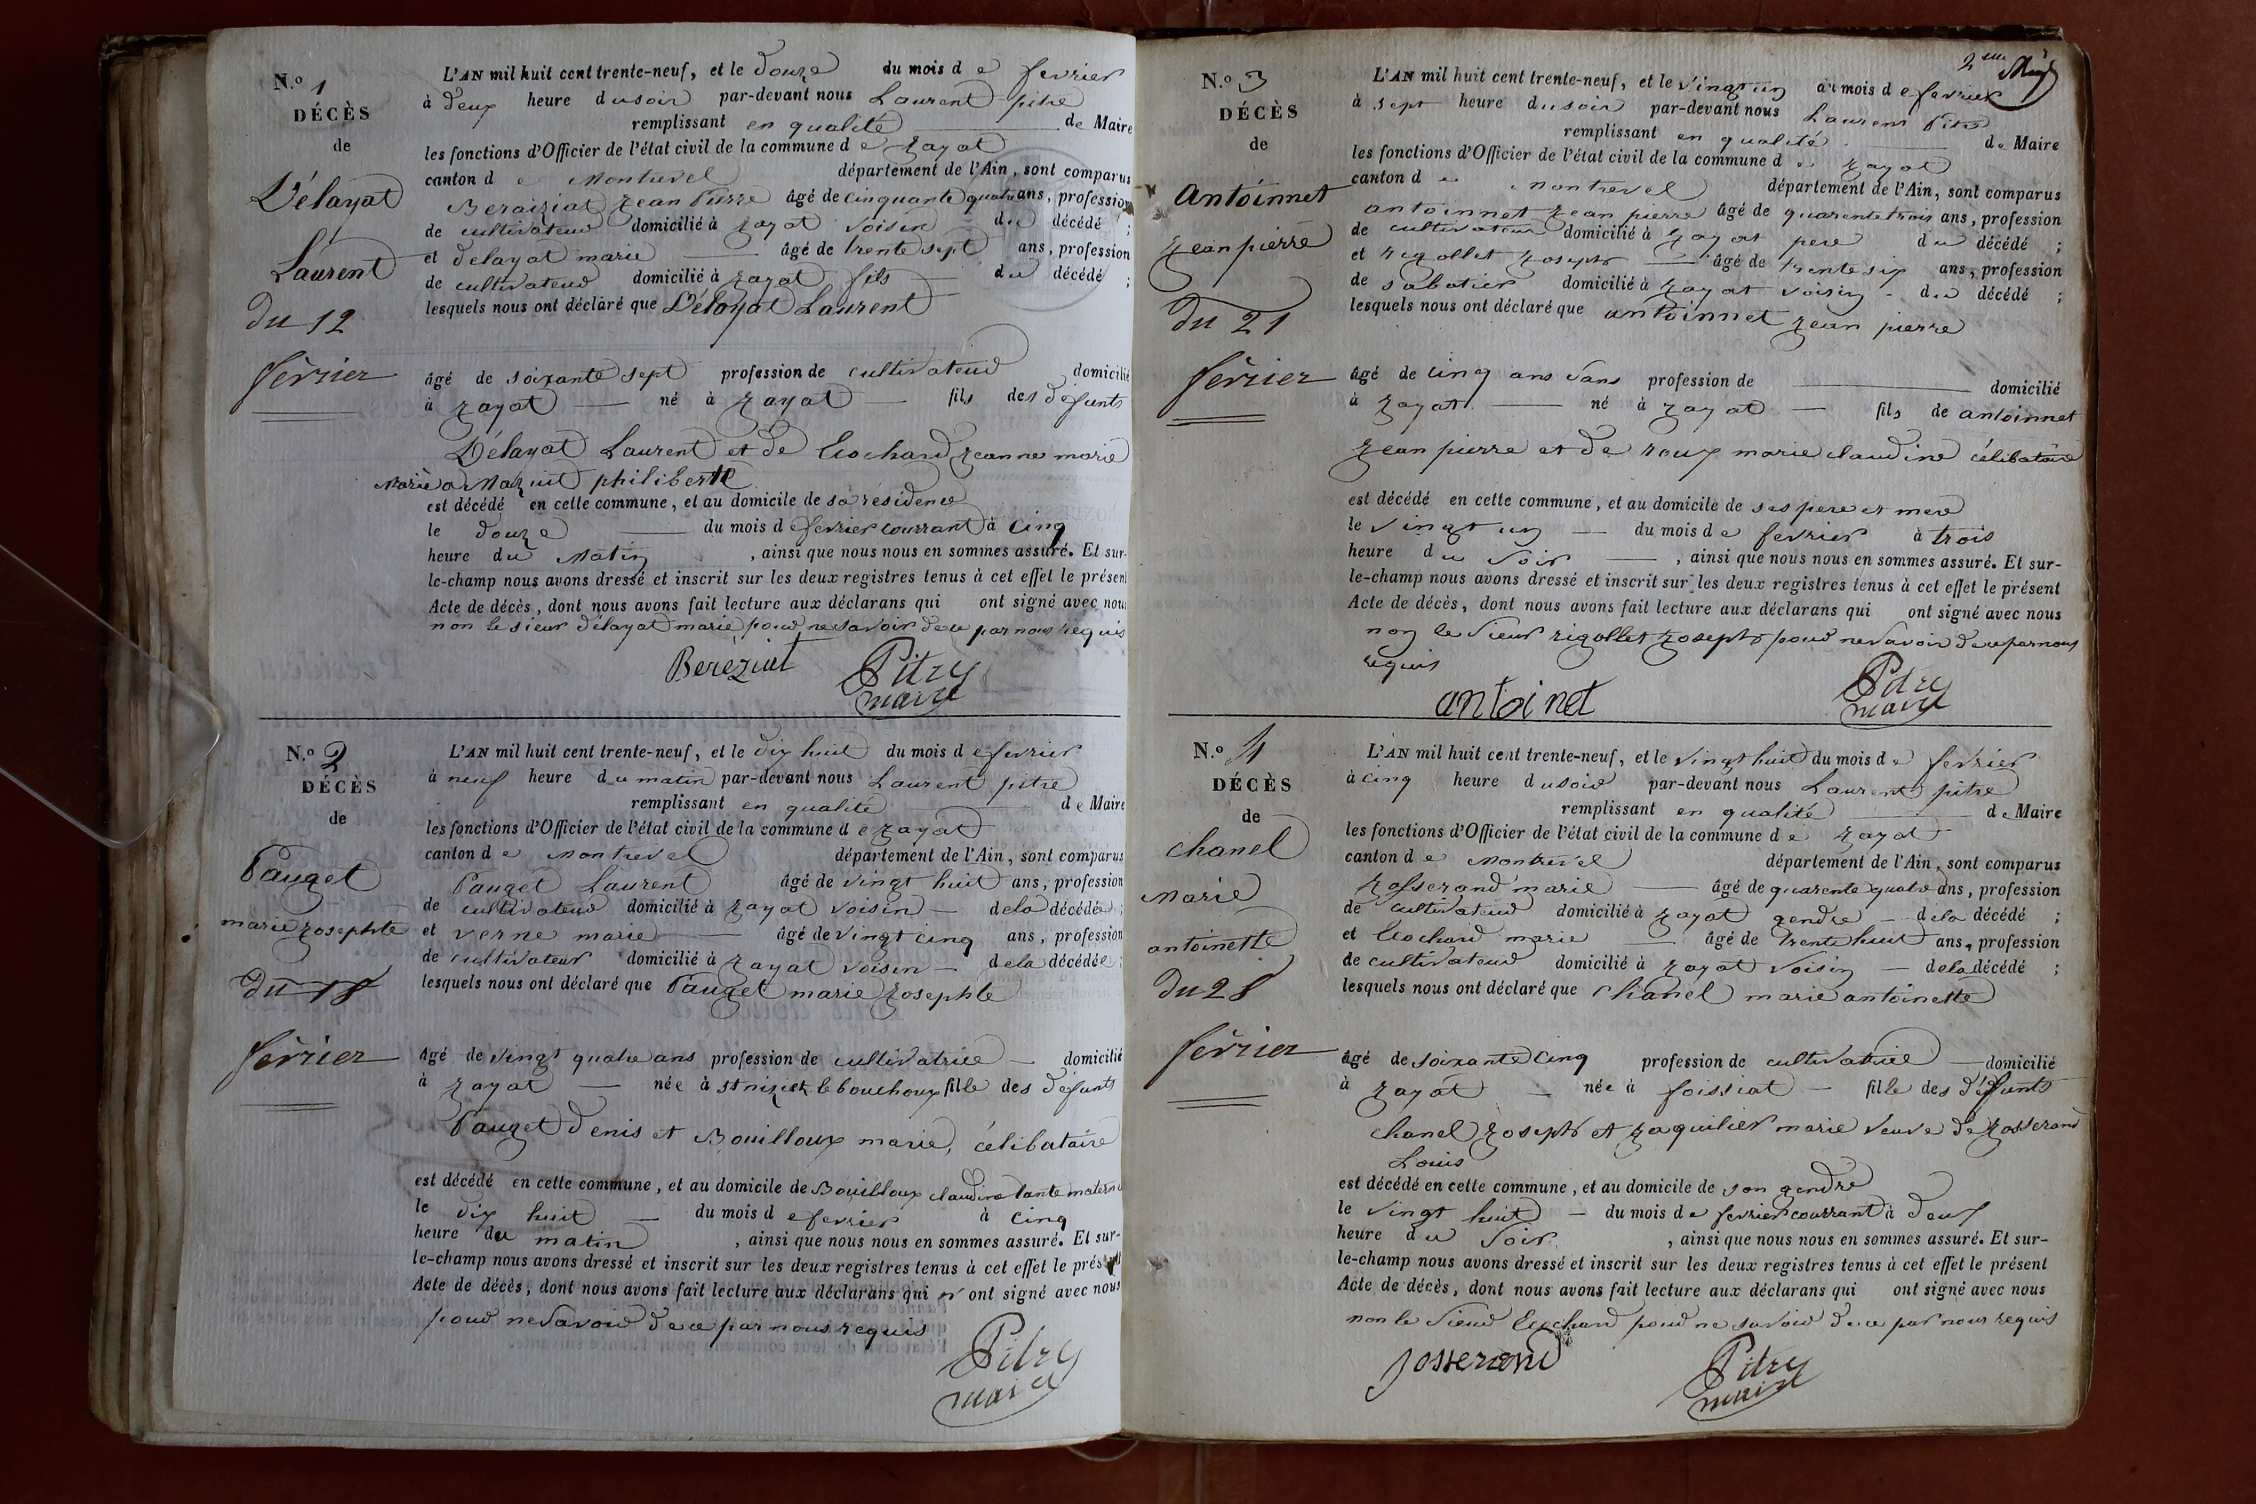 N.o 1
DÉCÈS
de
Délayat
Laurent
du 12
février
L'AN mil huit cent trente-neuf, et le douze du mois de fevrier
à deux heure du soir par-devant nous Laurent pitre
remplissant en qualité de Maire
les fonctions d'Officier de l'état civil de la commune de zayat
canton de Montrevel département de l'Ain, sont comparus
Beraiziat zean Pierre âgé de cinquante quatre ans, profession
de cultivateur domicilié à zayat voisin du décédé ;
et delayat marie âgé de trente sept ans, profession
de cultivateur domicilié à zayat fils du décédé ;
lesquels nous ont déclaré que Délayat Laurent
âgé de soixante sept profession de cultivateur domicilié
à zayat né à zayat fils des défunts
Délayat Laurent et de Cochard zeanne marie
Marié a Mazuit philiberte
est décédé en cette commune, et au domicile de sa résidence
le douze du mois de fevrier courrant à cinq
heure du Matin , ainsi que nous nous en sommes assuré. Et sur-
le-champ nous avons dressé et inscrit sur les deux registres tenus à cet effet le présent
Acte de décès, dont nous avons fait lecture aux déclarans qui ont signé avec nous
non le sieur délayat marie pour ne savoir de ce par nous requis
Bereziat Pitre
maire
N.o 2
DÉCÈS
de
Pauget
marie zosephte
du 18
février
L'AN mil huit cent trente-neuf, et le dix huit du mois de fevrier
à neuf heure du matin par-devant nous Laurent pitre
remplissant en qualité de Maire
les fonctions d'Officier de l'état civil de la commune de zayat
canton de Montrevel département de l'Ain, sont comparus
Pauget Laurent âgé de vingt huit ans, profession
de cultivateur domicilié à zayat voisin de la décédée ;
et verne marie âgé de vingt cinq ans, profession
de cultivateur domicilié à zayat voisin de la décédée ;
lesquels nous ont déclaré que Pauget marie zosephte
âgé de vingt quatre ans profession de cultivatrice domicilié
à zayat née à st nizier le bouchoux fille des défunts
Pauget denis et Bouilloux marie, célibataire
est décédé en cette commune, et au domicile de Bouilloux claudine tante materne
le dix huit du mois de fevrier à cinq
heure du matin , ainsi que nous nous en sommes assuré. Et sur-
le-champ nous avons dressé et inscrit sur les deux registres tenus à cet effet le présent
Acte de décès, dont nous avons fait lecture aux déclarans qui n'ont signé avec nous
pour ne savoir de ce par nous requis
Pitre
maire
2eme
N.o 3
DÉCÈS
de
antoinnet
zean pierre
du 21
février
L'AN mil huit cent trente-neuf, et le vingt un du mois de fevrier
à sept heure du soir par-devant nous Laurent Pitre
remplissant en qualité de Maire
les fonctions d'Officier de l'état civil de la commune de zayat
canton de Montrevel département de l'Ain, sont comparus
antoinnet zean pierre âgé de quarente trois ans, profession
de cultivateur domicilié à zayat pere du décédé ;
et rigollet zoseph âgé de trente six ans, profession
de sabotier domicilié à zayat voisin du décédé ;
lesquels nous ont déclaré que antoinnet zean pierre
âgé de cinq ans sans profession de domicilié
à zayat né à zayat fils de antoinnet
zean pierre et de roux marie claudine célibataire
est décédé en cette commune, et au domicile de ses pere et mere
le vingt un du mois de fevrier à trois
heure du soir , ainsi que nous nous en sommes assuré. Et sur-
le-champ nous avons dressé et inscrit sur les deux registres tenus à cet effet le présent
Acte de décès, dont nous avons fait lecture aux déclarans qui ont signé avec nous
non le sieur rigollet zoseph pour ne savoir de ce par nous
requis
antoinet Pitre
maire
N.o 4
DÉCÈS
de
chanel
Marie
antoinette
du 28
février
L'AN mil huit cent trente-neuf, et le vingt huit du mois de fevrier
à cinq heure du soir par-devant nous Laurent pitre
remplissant en qualité de Maire
les fonctions d'Officier de l'état civil de la commune de zayat
canton de Montrevel département de l'Ain, sont comparus
zosserand marie âgé de quarente quatre ans, profession
de cultivateur domicilié à zayat gendre de la décédé ;
et Cochard marie âgé de trente huit ans, profession
de cultivateur domicilié à zayat voisin de la décédé ;
lesquels nous ont déclaré que chanel marie antoinette
âgé de soixante cinq profession de cultivatrice domicilié
à zayat née à foissiat fille des défunts
chanel zoseph et zaquilier marie veuve de zosserand
Louis
est décédé en cette commune, et au domicile de son gendre
le vingt huit du mois de fevrier courrant à deux
heure du soir , ainsi que nous nous en sommes assuré. Et sur-
le-champ nous avons dressé et inscrit sur les deux registres tenus à cet effet le présent
Acte de décès, dont nous avons fait lecture aux déclarans qui ont signé avec nous
non le sieur Cochard pour ne savoir de ce par nous requis
josserand Pitre
maire